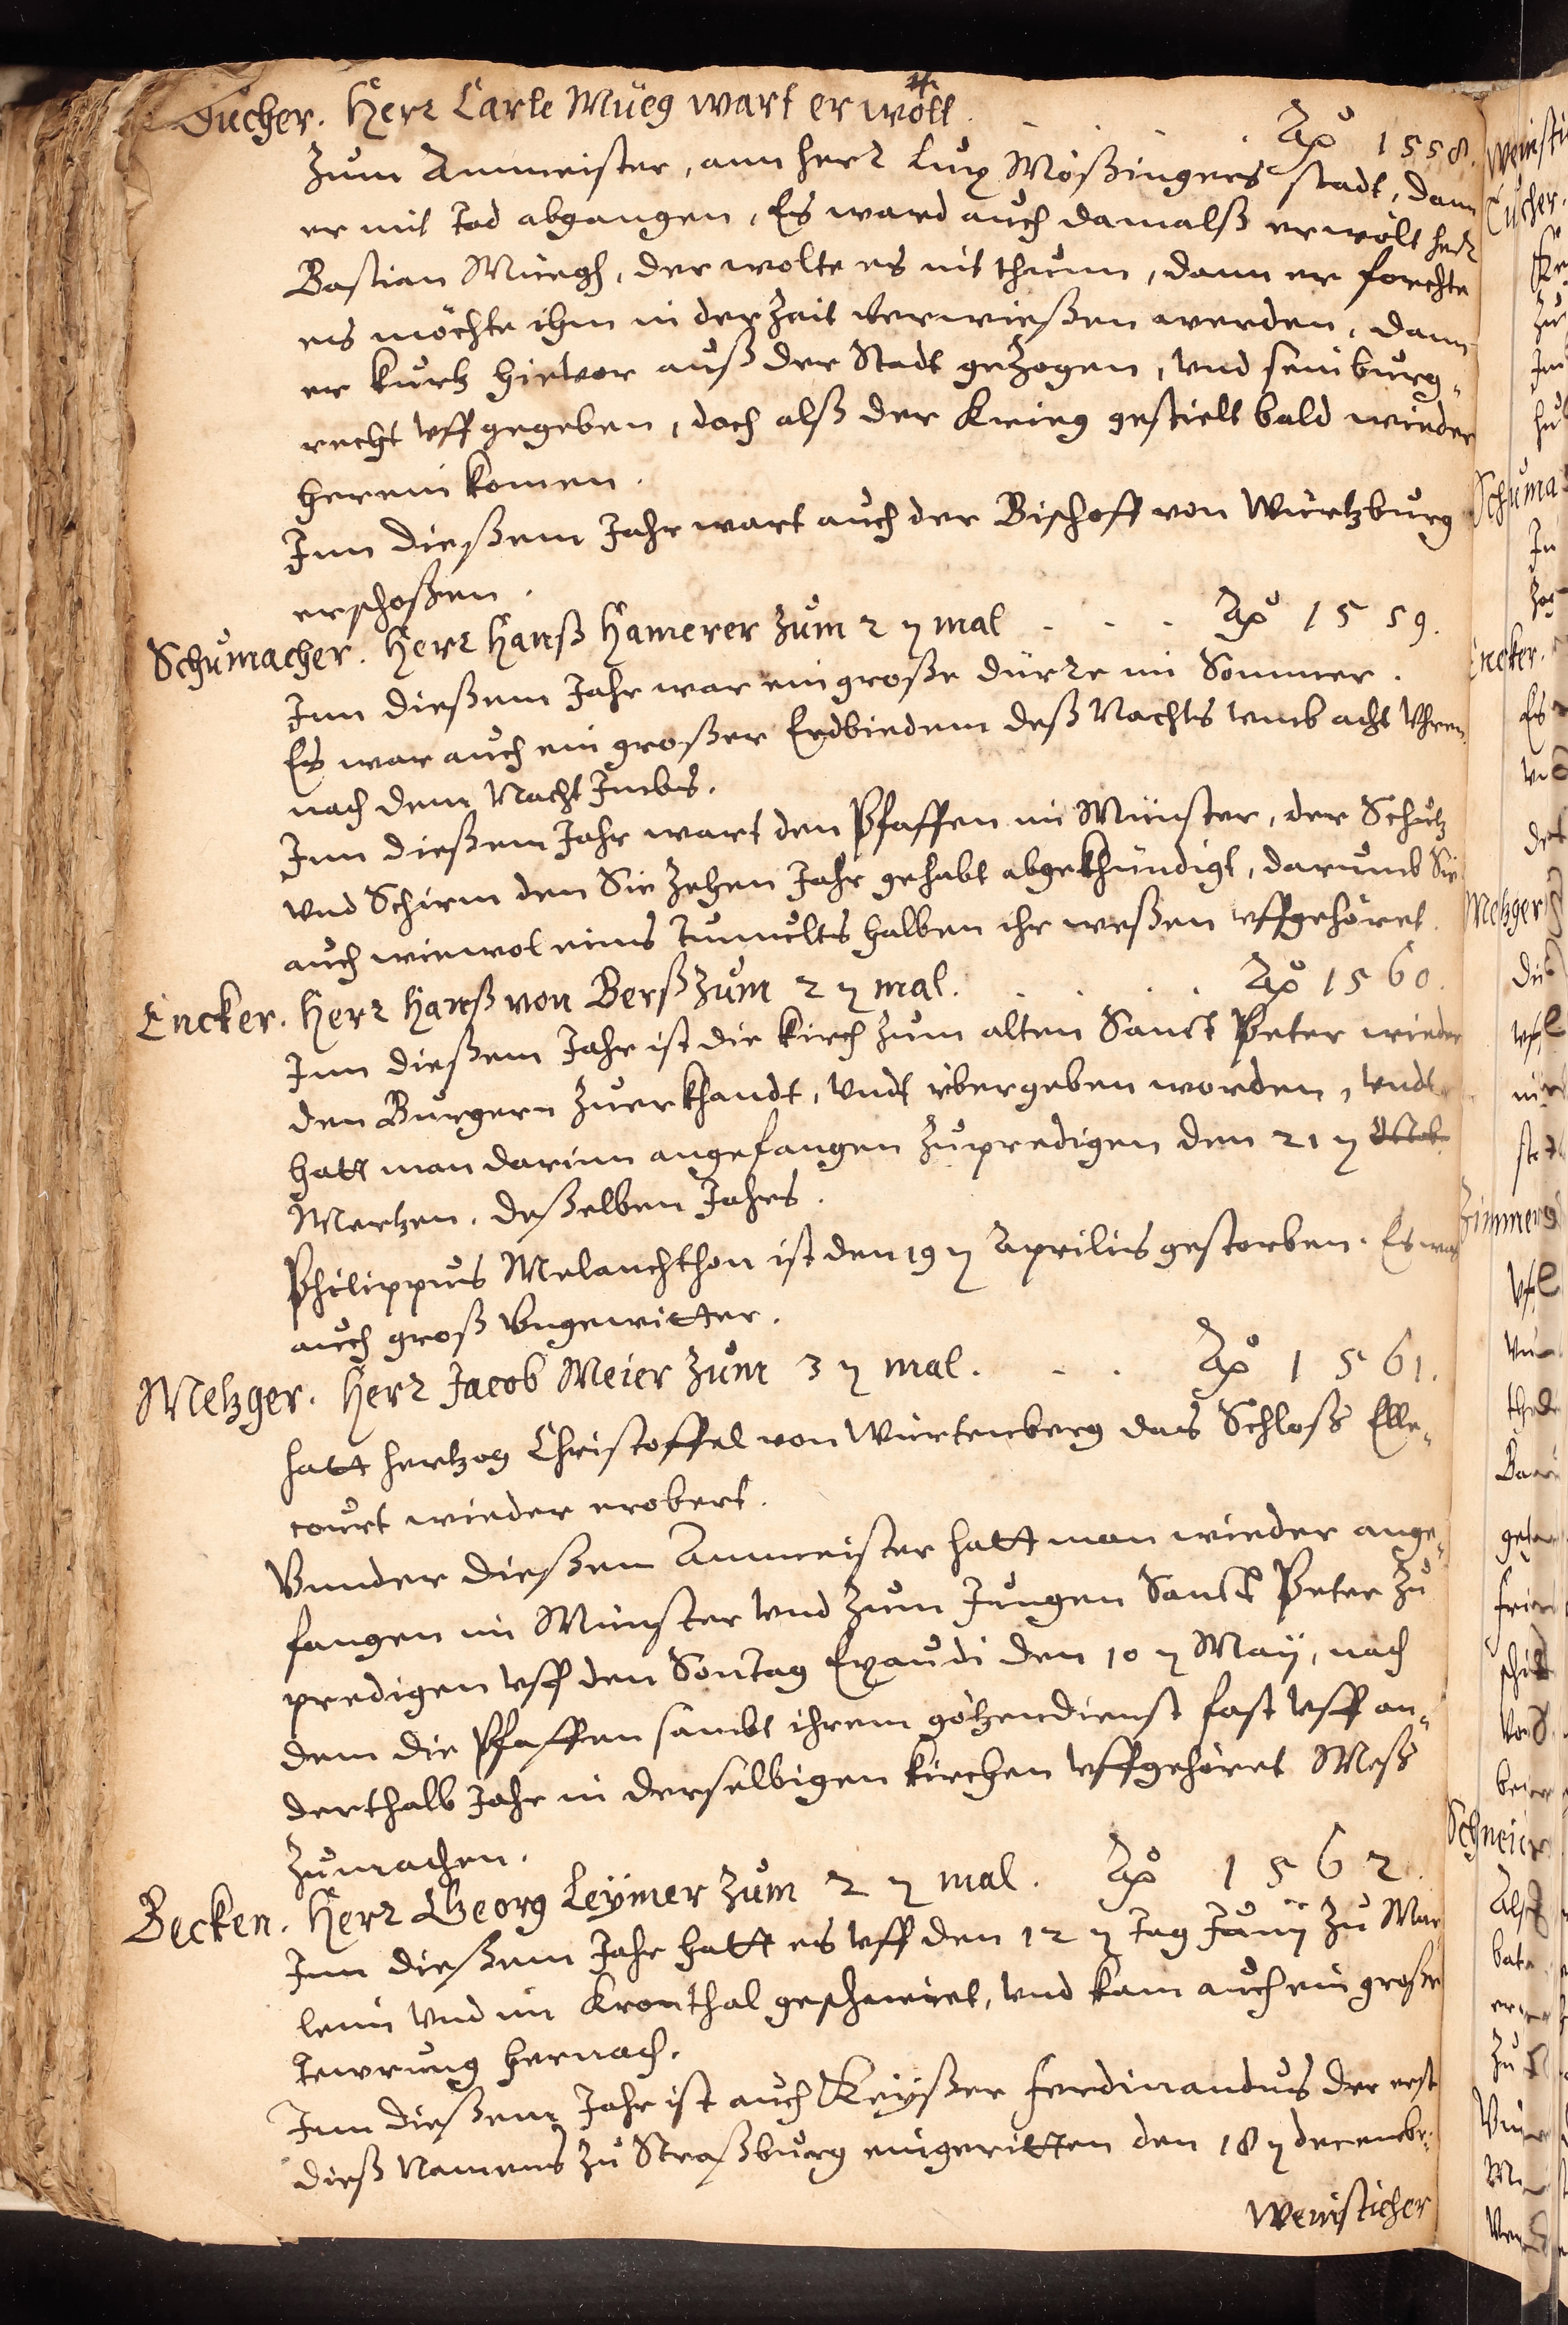 Ducher. Herr Carle Müeg wart erwölt. Aō 1558.
zum Ammeister, ann herr Lux Mößingers stadt, dann
er mit Tod abgangen, Es ward auch damalß erwölt herr
Bastian Müegh, der wolte es nit thunn, dann er forchte
es möchte ihm in der Zeit verwießen werden, dann
er kurtz hievor auß der Stadt gezogen, vnd sein burg-
recht vffgegeben, doch alß der Krieg gestielt bald wieder
herein komen.
Inn dießem Jahr wart auch der Bischoff von Würtzburg
erschoßen.
Schumacher. Herr Hanß Hamerer zum 2ꝛ mal . . . Aō 1559.
Inn dießem Jahr war ein große dürre im Sommer.
Es war auch ein großer Erdbiedem deß Nachts vmb acht Vhren,
nach dem Nacht Imbis.
Inn dießem Jahr wart den Pfaffen im Münster, der Schutz
vnd Schirm den Sie zehen Jahr gehabt abgekhündigt, darumb Sie
auch wiewol eins Tumults halben ihr weßen vffgehöret.
Encker. Herr Hanß von Berß zum 2ꝛ mal. . . . Aō 1560.
Inn dießem Jahr ist die Kirch zum alten Sanct Peter wieder
den Burgern zuerkhandt, vndt vbergeben worden, vndt
hatt man darinn angefangen zupredigen den 21ꝛ
Mertzen. deßelben Jahrs.
Philippus Melanchthon ist den 19ꝛ Aprilis gestorben. Es war
auch groß Vngewitter.
Metzger. Herr Jacob Meier zum 3ꝛ mal. . . Aō 1561.
hatt hertzog Christoffel von Würtenberg das Schloß Elle-
court wieder erobert.
Vnnder dießem Ammeister hatt man wieder ange-
fangen im Münster vnd zum Jungen Sanct Peter zu
predigen vff den Sontag Exaudi den 10ꝛ Maij, nach
dem die Pfaffen sambt ihrem götzendienst fast vff an-
derthalb Jahr in derselbigen kirchen vffgehöret Meß
zumachen.
Becken. Herr Georg Leymer zum 2ꝛ mal. Aō 1562.
Inn dießem Jahr hatt es vff den 12ꝛ Tag Junij zu Mar
lein vnd im Kronthal geschneiet, vnd kam auch ein große
Tewrung hernach.
Inn dießem Jahr ist auch Keyßer Ferdinandus der erst
dieß Namens zu Straßburg eingeritten den 18ꝛ decembr:
Weinsticher